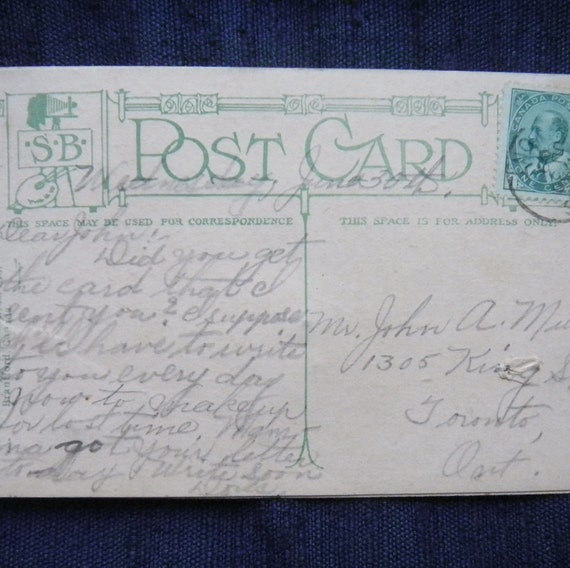 S·B·
POST CARD
CANADA POSTAGE
Wednesday, June 30th.
THIS SPACE MAY BE USED FOR CORRESPONDENCE
THIS SPACE IS FOR ADDRESS ONLY
Dear John:-
Did you get
the card that I
sent you? I suppose
have to write
to you every day
now to make up
for lost time. Mam
ma got your letter
to-day write soon
Mr. John A.
1305 King S
Toronto,
Ont.